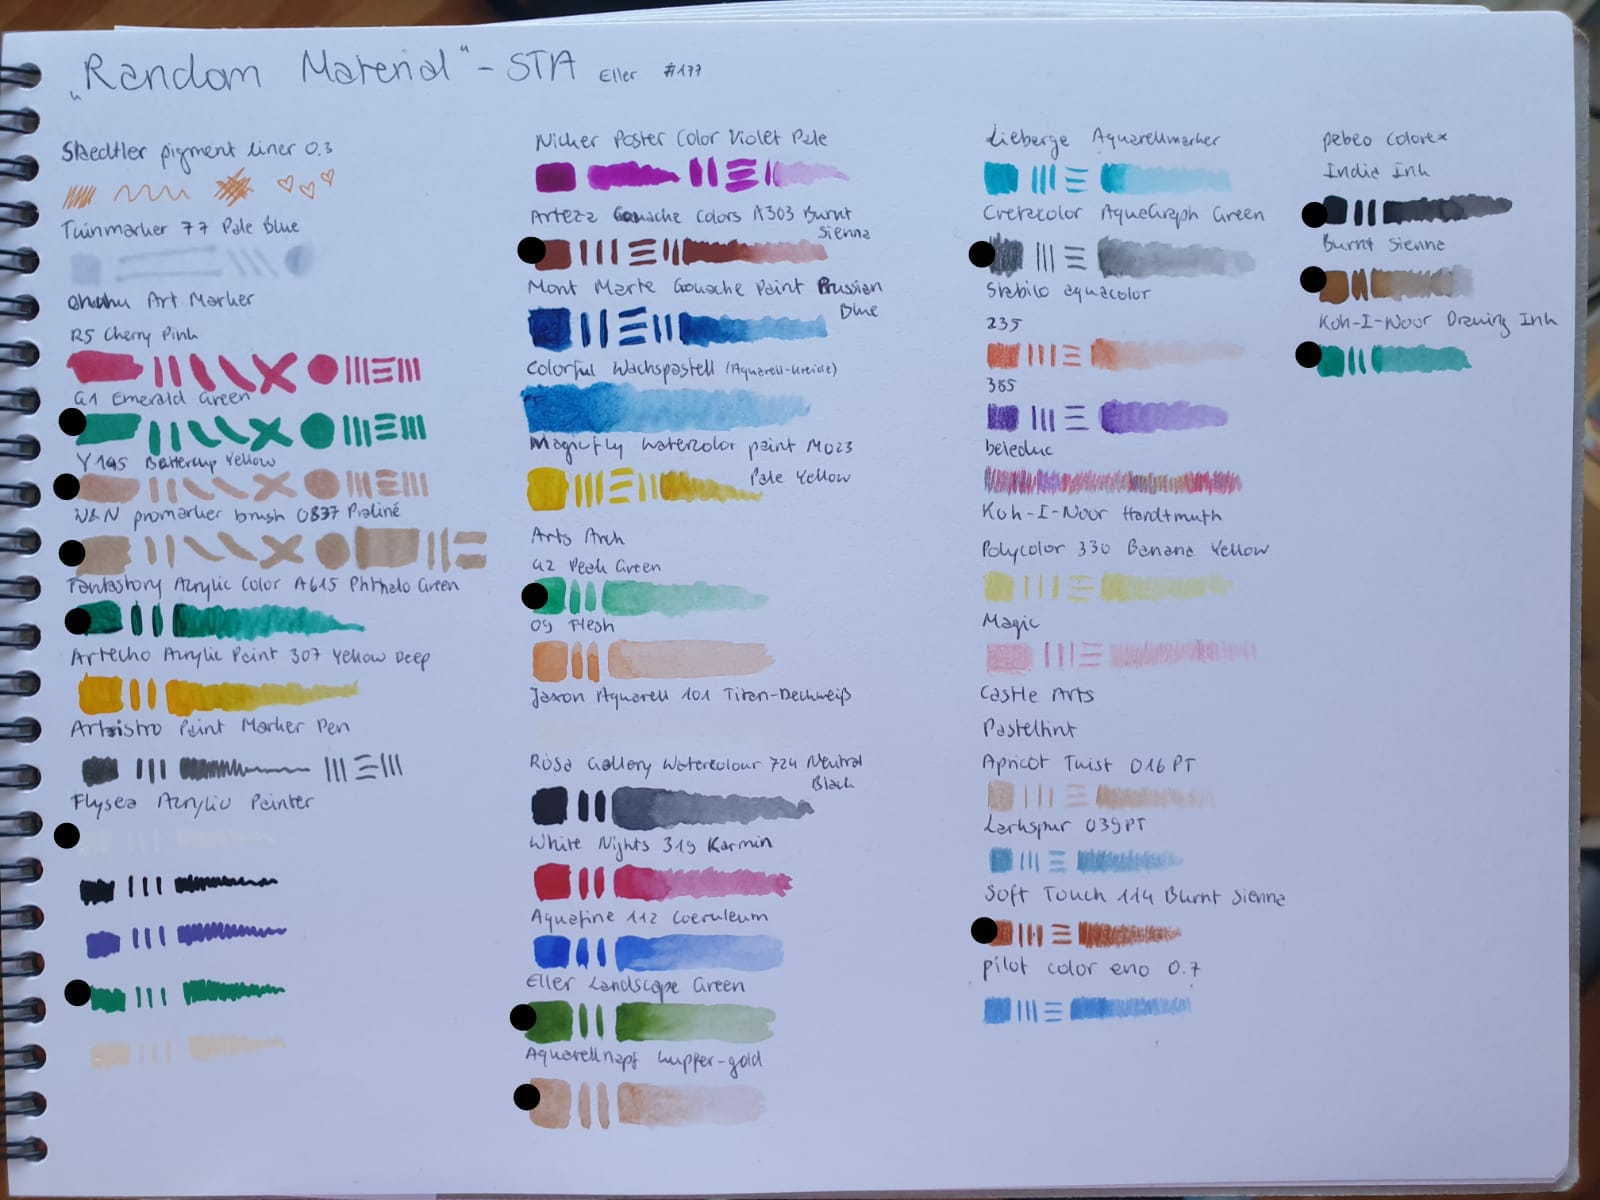 „Random Material“ - STA Eller #177
Staedtler pigment liner 0.3
Twinmarker 77 Pale Blue
Ohuhu Art Marker
R5 Cherry Pink
G1 Emerald Green
Y195 Buttercup Yellow
W&N promarker brush 0837 Praliné
Fantastory Acrylic Color A615 Phthalo Green
Artecho Acrylic Paint 307 Yellow Deep
Artistro Paint Marker Pen
Flysea Acrylic Painter
Nicker Poster Color Violet Pale
Arteza Gouache Colors A303 Burnt
Sienna
Mont Marte Gouache Paint Prussian
Blue
Colorful Wachspastell (Aquarell-Kreide)
Magicfly Watercolor paint M023
Pale Yellow
Arts Arch
G2 Peak Green
09 Flesh
Jaxon Aquarell 101 Titan-Deckweiß
Rosa Gallery Watercolour 724 Neutral
Black
White Nights 319 Karmin
Aquafine 112 Coeruleum
Eller Landscape Green
Aquarellnapf kupfer-gold
Lieberge Aquarellmarker
Cretacolor AquaGraph Green
Stabilo aquacolor
235
385
beleduc
Koh-I-Noor Hardtmuth
Polycolor 330 Banana Yellow
Magic
Castle Arts
Pasteltint
Apricot Twist 016 PT
Larkspur 039PT
Soft Touch 114 Burnt Sienna
pilot color eno 0.7
pebeo colorex
India Ink
Burnt Sienna
Koh-I-Noor Drawing Ink